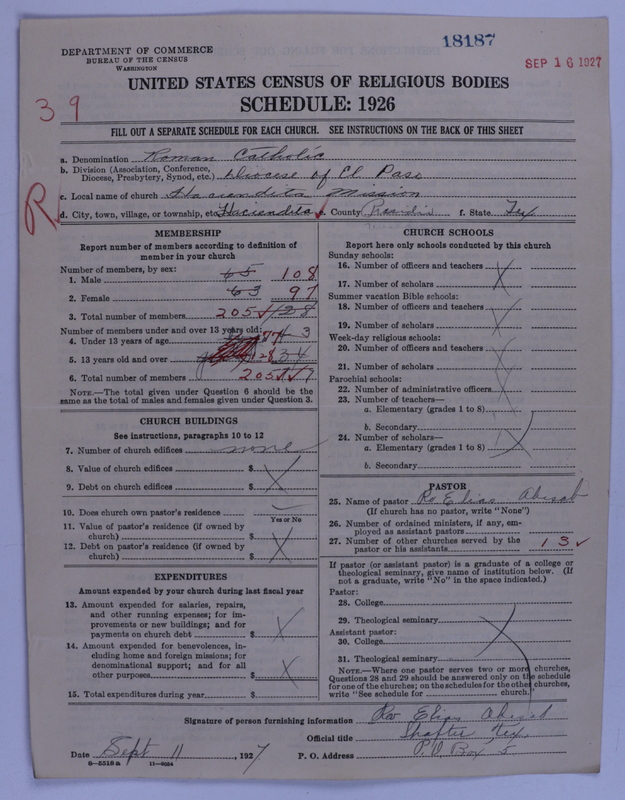 18187
SEP 16 1927
DEPARTMENT OF COMMERCE
BUREAU OF THE CENSUS
WASHINGTON
UNITED STATES CENSUS OF RELIGIOUS BODIES
SCHEDULE: 1926
39
FILL OUT A SEPARATE SCHEDULE FOR EACH CHURCH. SEE INSTRUCTIONS ON THE BACK OF THIS SHEET
R
a. Denomination Roman Catholic
b. Division (Association, Conference,
Diocese, Presbytery, Synod, etc.) Diocese of El Paso
c. Local name of church Haciendita Mission
d. City, town, village, or township, etc. Haciendita e. County Presidio f. State Tex
MEMBERSHIP
Report number of members according to definition of
member in your church
Number of members, by sex:
1. Male 65 108
2. Female 63 97
3. Total number of members 205 128
Number of members under and over 13 years old:
4. Under 13 years of age 77
5. 13 years old and over 128
6. Total number of members 205
NOTE.—The total given under Question 6 should be the
same as the total of males and females given under Question 3.
CHURCH BUILDINGS
See instructions, paragraphs 10 to 12
7. Number of church edifices none
8. Value of church edifices $
9. Debt on church edifices $
10. Does church own pastor's residence
Yes or No
11. Value of pastor's residence (if owned by
church) $
12. Debt on pastor's residence (if owned by
church) $
EXPENDITURES
Amount expended by your church during last fiscal year
13. Amount expended for salaries, repairs,
and other running expenses; for im-
provements or new buildings; and for
payments on church debt $
14. Amount expended for benevolences, in-
cluding home and foreign missions; for
denominational support; and for all
other purposes $
15. Total expenditures during year $
CHURCH SCHOOLS
Report here only schools conducted by this church
Sunday schools:
16. Number of officers and teachers
17. Number of scholars
Summer vacation Bible schools:
18. Number of officers and teachers
19. Number of scholars
Week-day religious schools:
20. Number of officers and teachers
21. Number of scholars
Parochial schools:
22. Number of administrative officers
23. Number of teachers—
a. Elementary (grades 1 to 8)
b. Secondary
24. Number of scholars—
a. Elementary (grades 1 to 8)
b. Secondary
PASTOR
25. Name of pastor Rv Elias
(If church has no pastor, write "None")
26. Number of ordained ministers, if any, em-
ployed as assistant pastors
27. Number of other churches served by the
pastor or his assistants 13
If pastor (or assistant pastor) is a graduate of a college or
theological seminary, give name of institution below. (If
not a graduate, write "No" in the space indicated.)
Pastor:
28. College
29. Theological seminary
Assistant pastor:
30. College
31. Theological seminary
NOTE.—Where one pastor serves two or more churches,
Questions 28 and 29 should be answered only on the schedule
for one of the churches; on the schedules for the other churches,
write "See schedule for church."
Signature of person furnishing information Rev Elias
Official title Shafter Tex
Date Sept 11, 1927 P. O. Address P.O. Box 5
6-5318a 11-9034